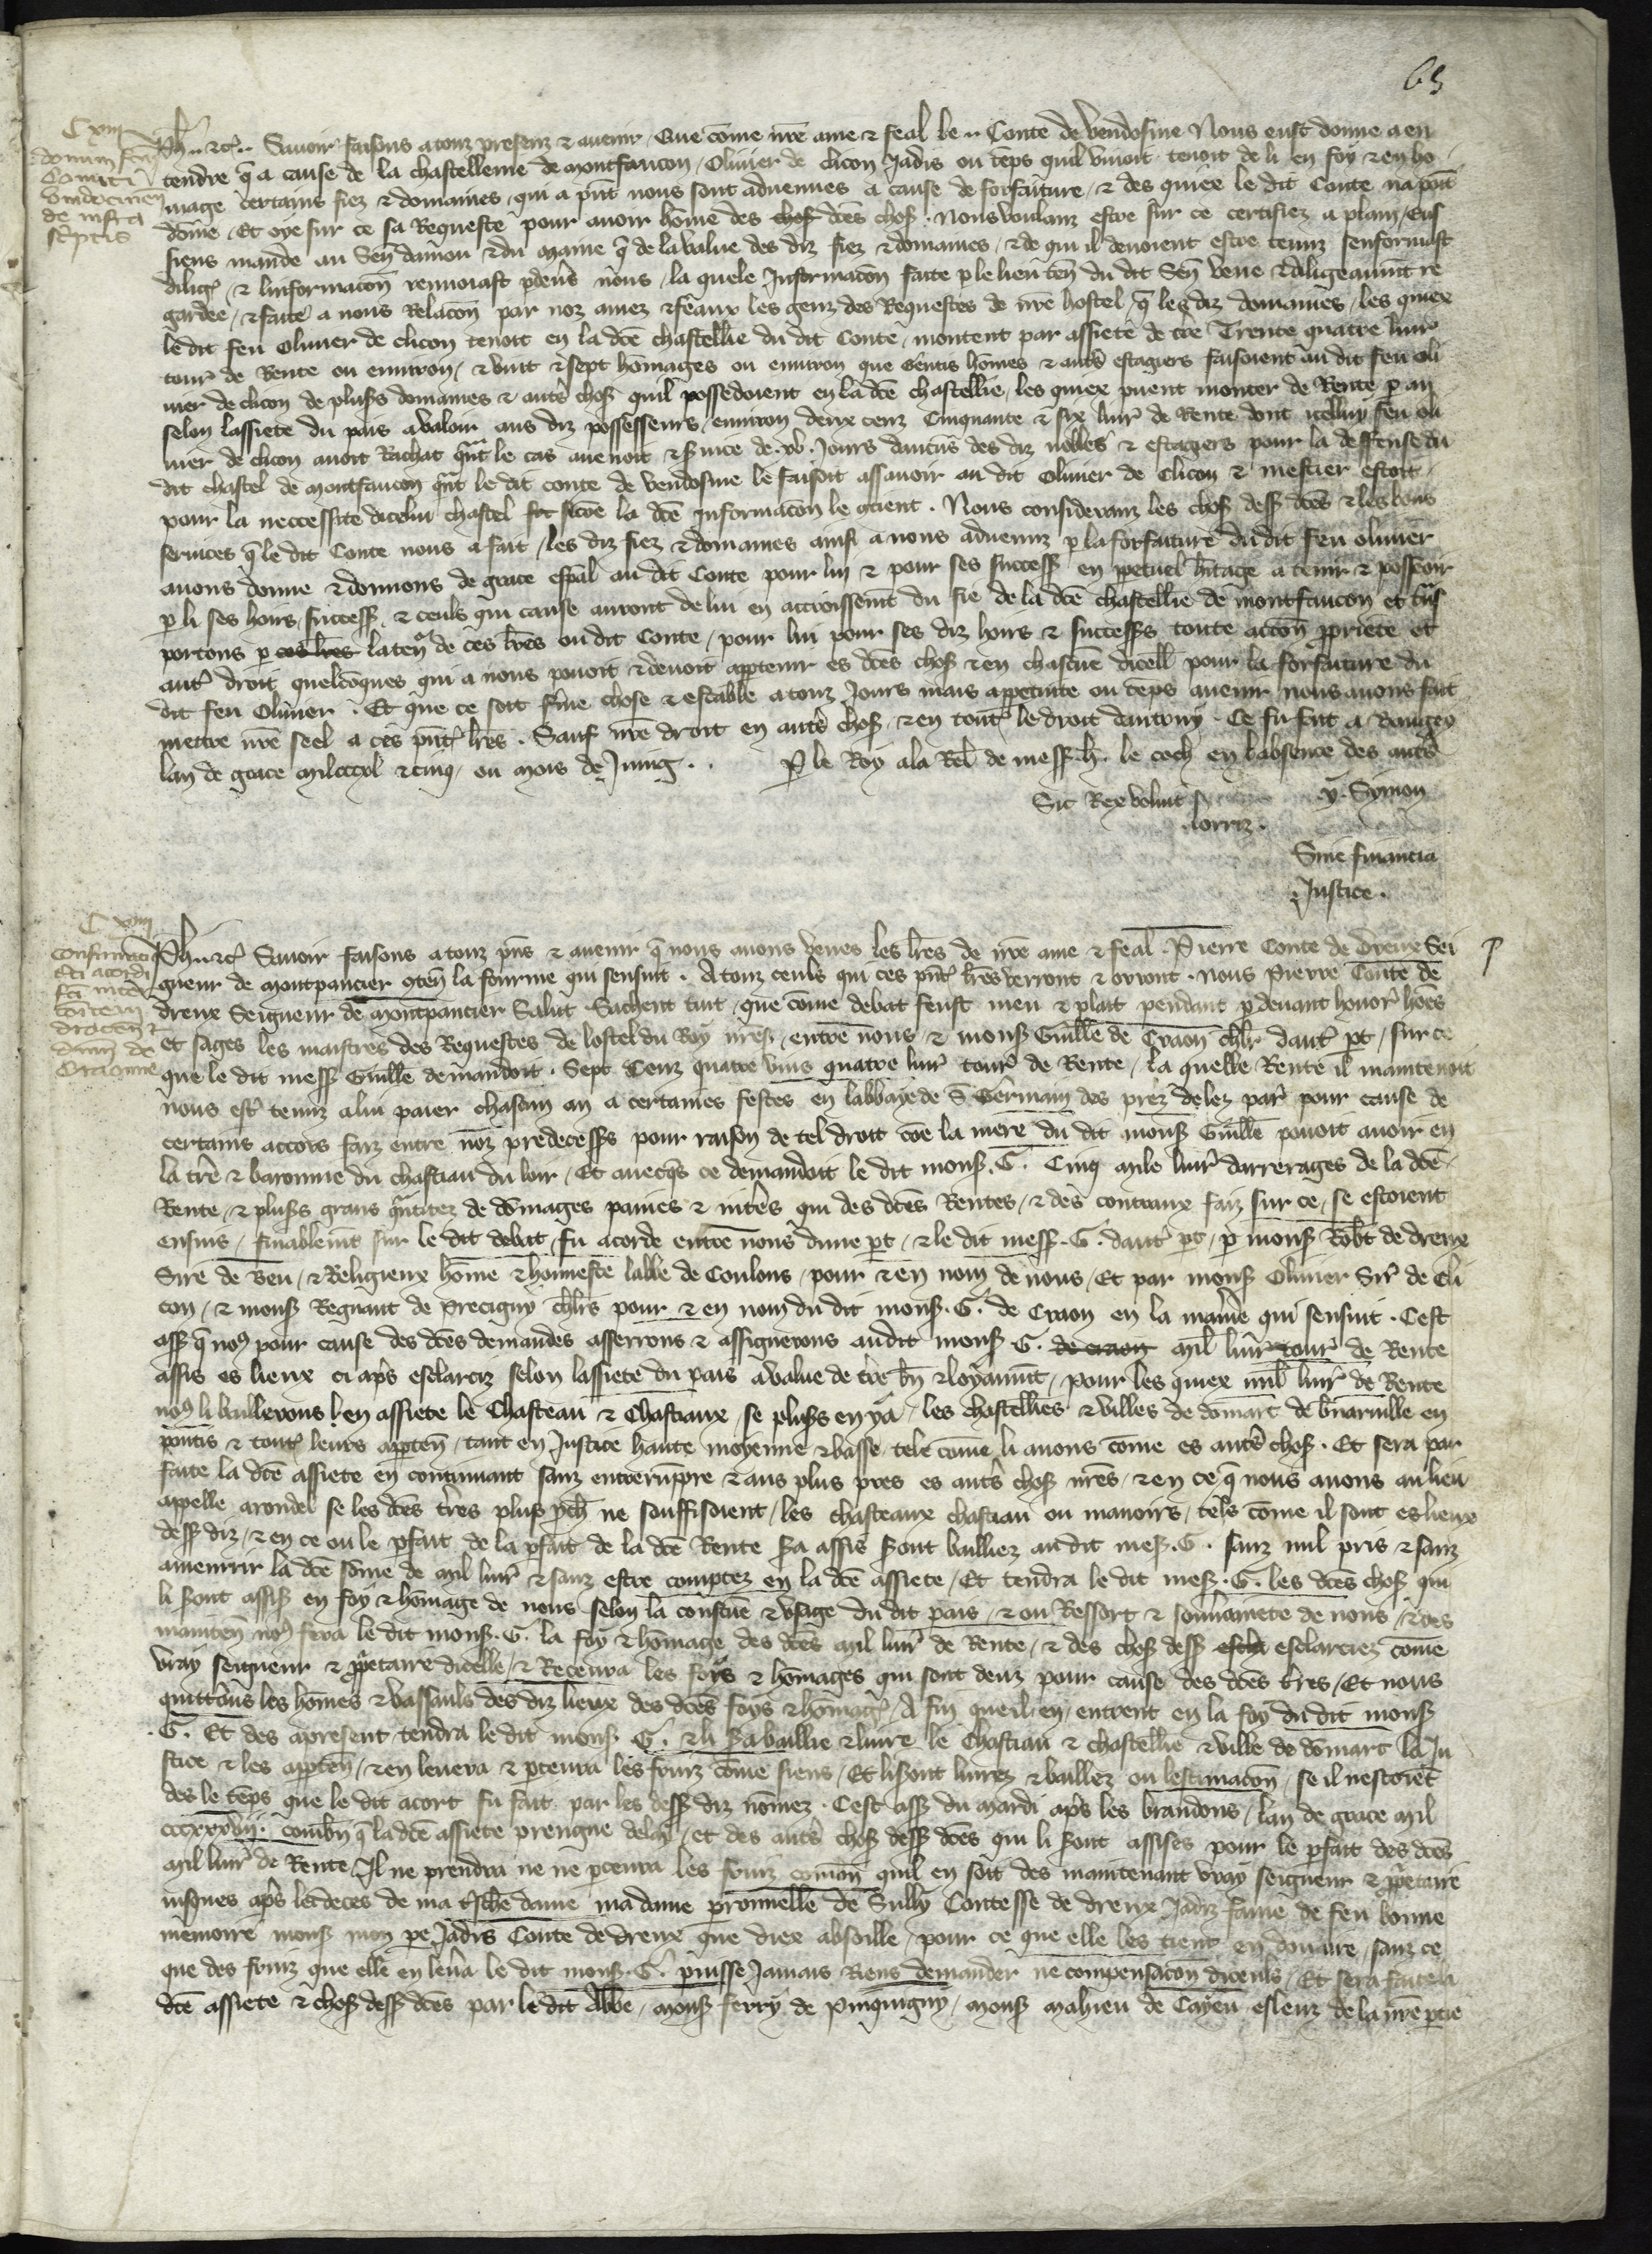 63
C xiii
donum fcm
Comiti
Vindocinen
de infra
scriptis
Ph. etc. Savoir faisons a touz presenz et avenir, Que come nre ame et feal le .. Conte de Vendosme Nous eust donne a en
tendre q a cause de la chastellenie de montfaucon, Olivier de clicon Jadis ou temps quil vivoit tenoit de li en foy et en ho
mage certains fiez et domaines, qui a pnt nous sont advenues a cause de forfaiture, et des quiex le dit Conte na pnt
home, Et oye sur ce sa Requeste pour avoir home des chos dces chos. Nous voulanz estre sur ce certifiez a plain, Eus
siens mande au Sen daniou et du maine q de la value des diz fiez et domaines, et de qui il devoient estre tenuz senformast
dilig, et linformacon renvoiast pdevs nous, la quele Informacon faite p le lieu ten du dit Sen veue et diligeaument re
gardee, et faite a nous Relacon par noz amez et feaux les genz des Requestes de nre hostel, q les diz domaines, les quiex
le dit feu Olivier de clicon tenoit en la dce chastellie du dit Conte, montent par assiete de tre Trente quatre livr
tour de Rente ou environ, et vint et sept homages ou environ que gentis homes et auts estagiers faisoient au dit feu oli
vier de clicon de plusrs domaines et auts chos quil possedoient en la dce chastellie, les quiex puent monter de Rente p an
selon lassiete du pais a valoir aus diz possesseurs, environ deux cenz Cinquante et six livr de Rente dont icelluy feu oli
vier de clicon avoit Rachat qnt le cas avenoit et service de .xv. Jours daucuns des diz nobles et estagiers pour la deffense du
dit chastel de montfaucon qnt le dit conte de vendosme le faisoit assavoir au dit Olivier de Clicon et mestier estoit
pour la neccessite dicelui chastel sicoe la dce Informacon le gtient. Nous consideranz les chos dess dces et les bons
services q le dit Conte nous a fait, les diz fiez et domaines ainsi a nous advenuz p la forfaiture du dit feu olivier
avons donne et donnons de grace espal au dit Conte pour lui et pour ses success en ppetuel hitage a tenir et posseoir
p li ses hoirs, success, et ceuls qui cause auront de lui en accroissemt du fie de la dce chastellie de montfaucon et trns
portons p ces lres laten de ces lres ou dit Conte, pour lui pour ses diz hoirs et successrs toute accon ppriete et
aut droit quelcoques qui a nous povoit et devoit apptenir es dces chos et en chascune dicell pour la forfaiture du
dit feu Olivier. Et que ce soit fme chose et estable a touz Jours mais a ppetuite ou temps avenir nous avons fait
mettre nre seel a ces pnt lres. Sauf nre droit en auts chos et en tout le droit dautruy. Ce fu fait a Vangeo
lan de grace mil cccxl et cinq, ou mois de Juing. .. P le Roy a la Rel de mess. h. le coch en labsence des auts
y. Symon
Sic Rex voluit
lorriz.
Sine financia
Justice.
C xiiii
confirmaco
cti acordi
fci inter
comitem
drocen et
dnm de
Craonne
Ph. etc Savoir faisons a touz pns et avenir q nous avons veues les lres de nre ame et feal. Pierre Conte de dreux Sei
gneur de montpancier gten la fourme qui sensuit. A touz ceuls qui ces pnt lres verront et orront. Nous Pierre Conte de
dreux Seigneur de montpancier Salut. Sachent tuit, que come debat feust meu et plait pendant pdevant honor homes
et sages les maistres des Requestes de lostel du Roy nres, entre nous, et mons Guille de Craon chlr daut pt, sur ce
que le dit mess Guille demandoit. Sept Cenz quatre vins quatre livr tour de Rente, la quelle Rente il maintenoit
nous est tenuz a lui paier chascun an a certaines festes en labbaye de S. Germain des prez delez par pour cause de
certains accors faiz entre noz predecessrs pour raison de tel droit coe la mere du dit mons Guille povoit avoir en
la tre et baronnie du chastiau du loir, Et avecqs ce demandoit le dit mons. G. Cinq mile livr darrerages de la dce
Rente, et plusrs grans quntitez de domages paines et interes qui des dces Rentes, et des contraux faiz sur ce, se estoient
ensuis, finablemt sur le dit debat, fu acorde entre nous dune pt, et le dit mess. G. daut pt, p mons Robt de dreux
Sire de Beu, et Religieux home et honneste labbe de Coulons, pour et en nom de nous, Et par mons Olivier Sir de Cli
con, et mons Regnaut de Precigny chlrs pour et en nom du dit mons. G. de Craon en la maniere qui sensuit. Cest
ass q nos pour cause des dces demandes asserrons et assignerons au dit mons G. de craon mil livr tour de Rente
assis es lieux ci aprs esclarciz selon lassiete du pais a value de tre bn et loyaumt, pour les quiex mil livr de Rente
nos li baillerons en assiete le Chasteau et Chastiaux, se plusrs en y a, les chastellies et villes de domart de bnarville en
pontis et tout leurs apptenn, tant en Justice haute moyenne et basse, tele come li avons come es auts chos. Et sera par
faite la dce assiete en continuant sanz entrerompre et aus plus pres es auts chos nres, et en ce q nous avons au lieu
apelle arondel se les dces trres plus pch ne souffisoient, les chasteaux chastiau ou manoirs, tels come il sont es lieux
dess diz, et en ce ou le pfait de la pfait de la dce Rente sra assis seront bailliez au dit mess. G. sanz nul pris et sanz
amenrir la dce some de mil livr et sanz estre comptez en la dce assiete, Et tendra le dit mess. G. les dces chos qui
li sront assis en foy et homage de nous selon la coustume et usage du dit pais, et ou Ressort et sovrainete de nous, et des
mainten nos fera le dit mons. G. la foy et homage des dces mil livr de Rente, et des chos dess escla esclarciez come
vray seigneur et ppetaire dicelle, et Recevra les foys et homages qui sont deuz pour cause des dces tres, Et nous
quittons les homes et vassauls des diz lieux des dces foys et homages, A fin que il en entrent en la foy du dit mons
. G. Et des apresent tendra le dit mons G. et li sra baillie et livre le Chastiau et chastellie et ville de domart la Ju
stice et les apptenn, et en levera et pcevra les fruiz come siens, Et li sront livrez et bailliez ou lestimacon, se il nestoiet
des le temps que le dit acort fu fait par les dess diz nomez. Cest ass du mardi aprs les brandons, lan de grace mil
cccxxxvii. combn q la dce assiete prengne delay, et des auts chos dess dces qui li sront assises pour le pfait des dces
mil livr de Rente, Il ne prendra ne ne pcevra les fruiz comen quil en soit des maintenant vray seigneur et ppetaire
iusques aprs le deces de ma tschiere dame ma dame perronnelle de Sully Contesse de dreux Jadiz fame de feu bonne
memoire mons mon pe Jadis Conte de dreux que diex absoille, pour ce que elle les tient en douaire, sanz ce
que des fruiz que elle en levra le dit mons. G. puisse Jamais Riens demander ne compensacon diceuls, Et sera faite la
dce assiete et chos dess dces par le dit Abbe, mons ferry de pinquigny, mons mahieu de Cayeu esleuz de la nre ptie